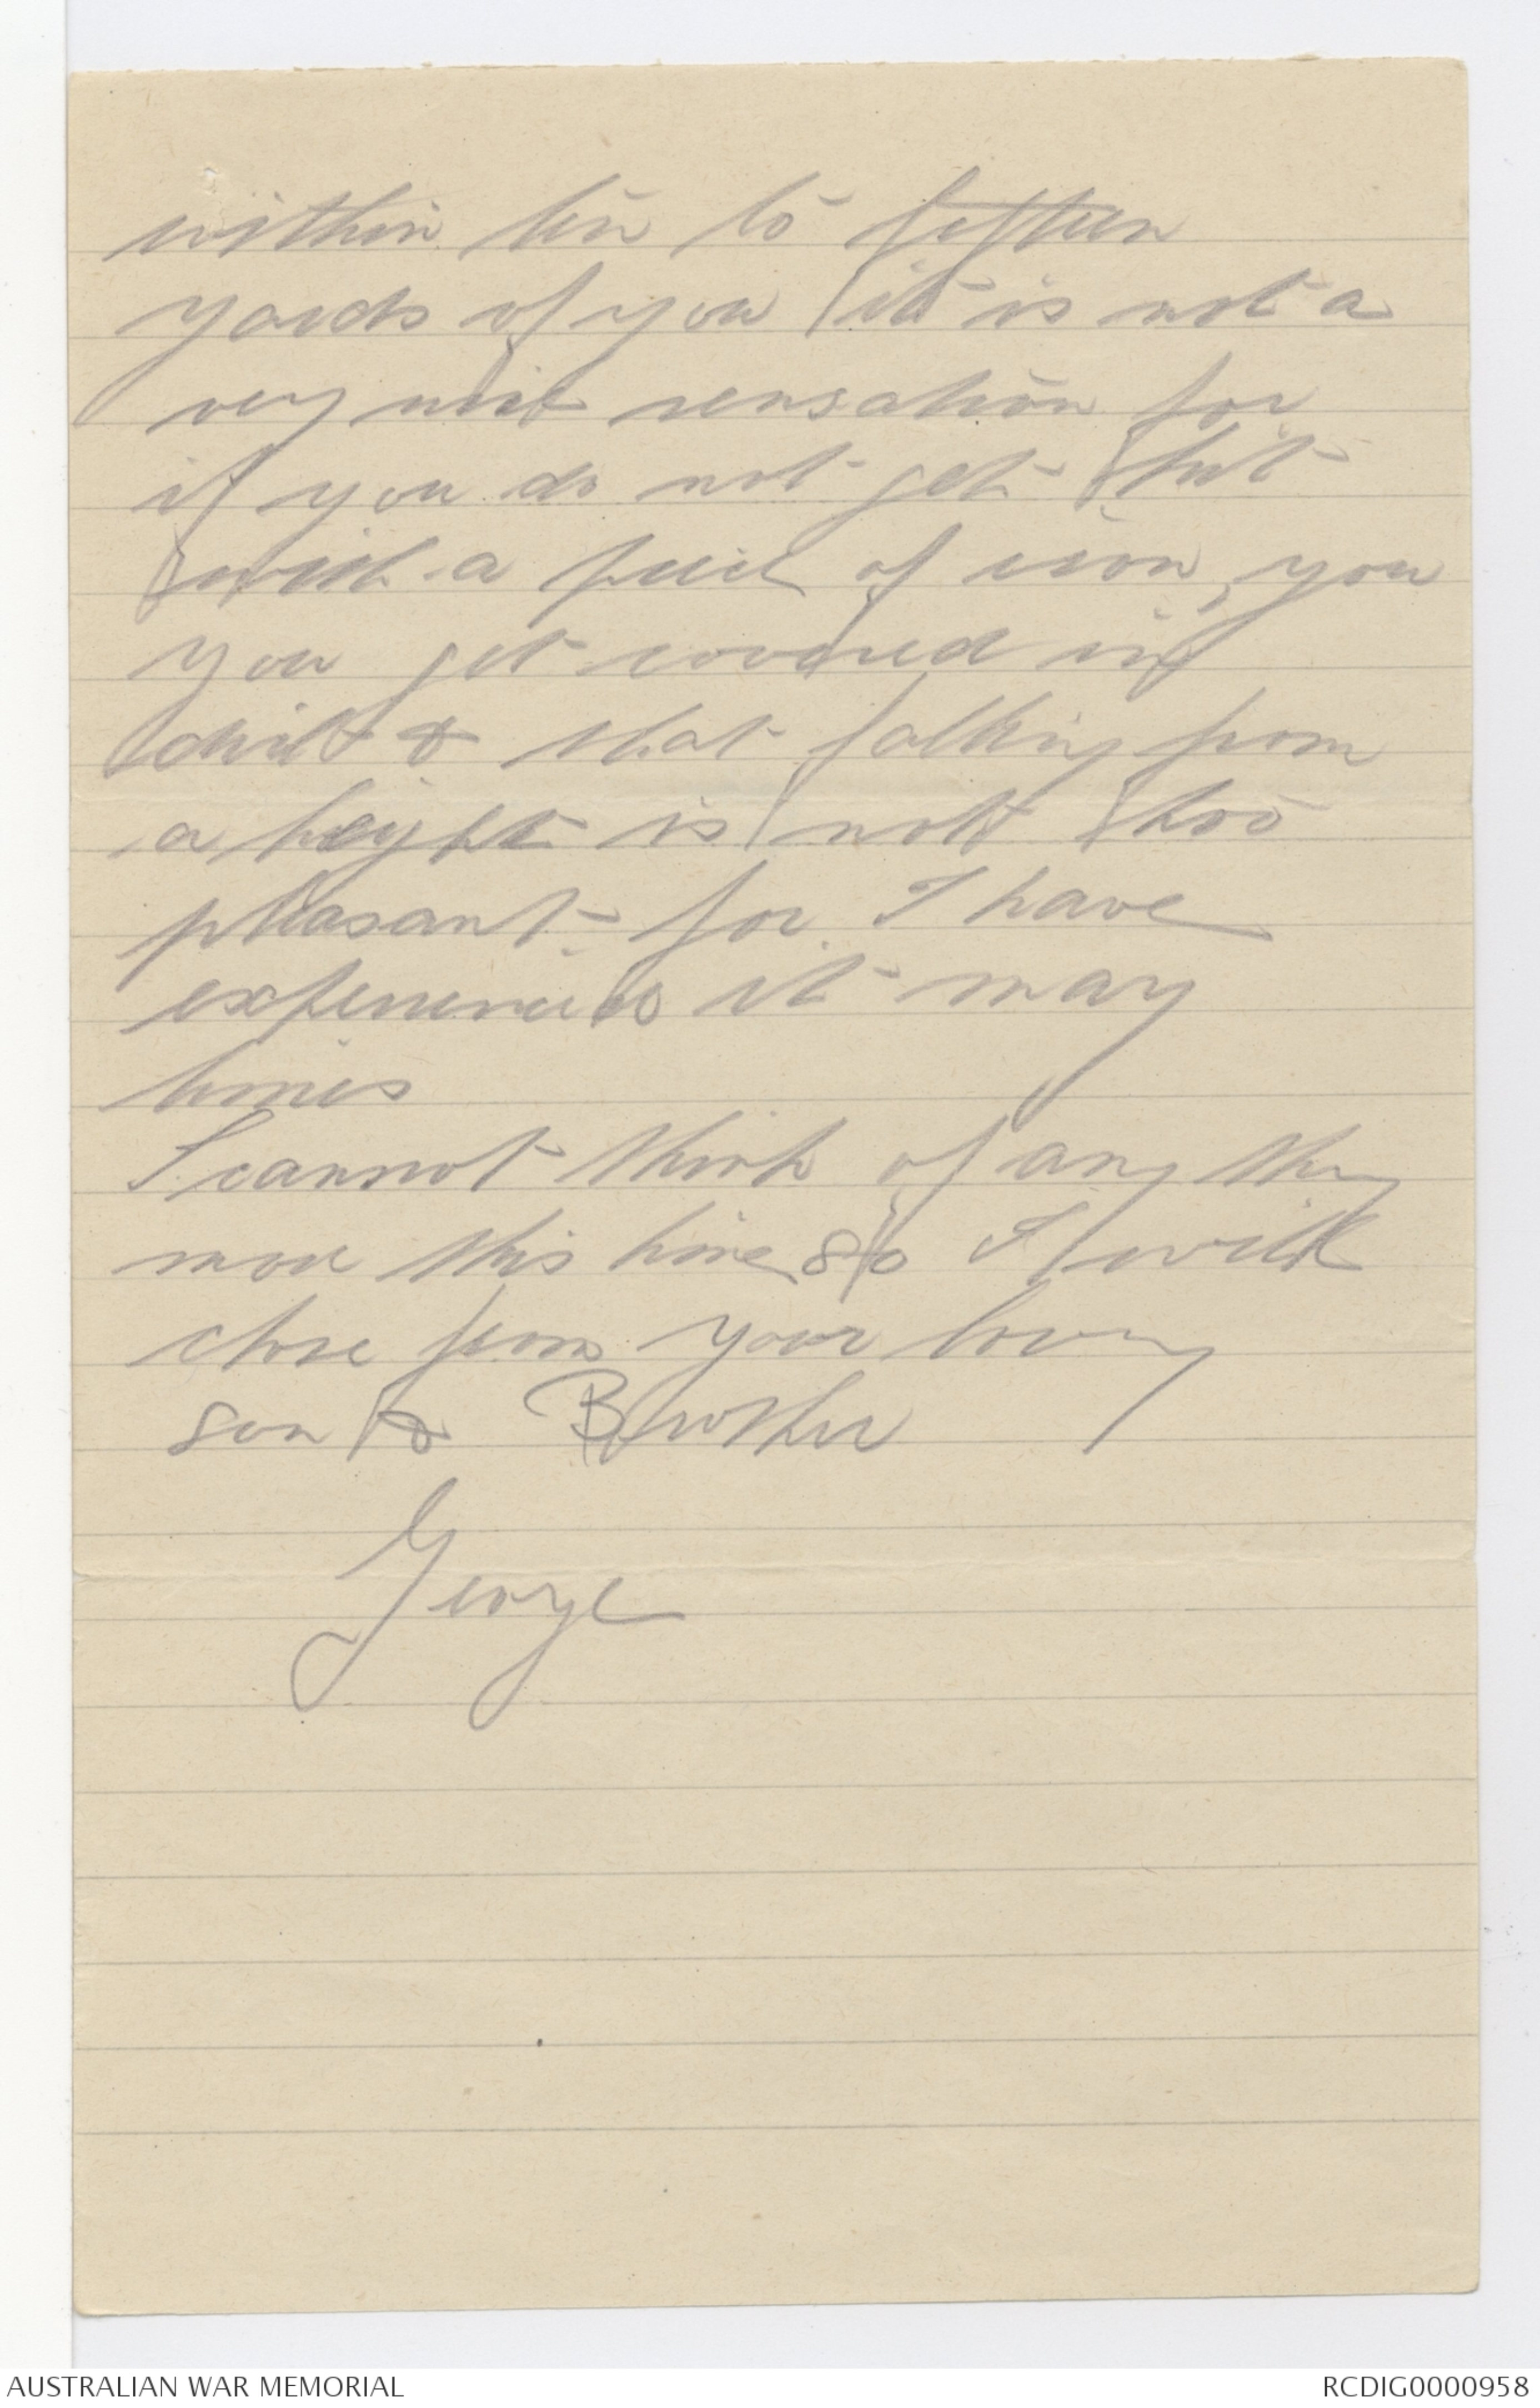 within ten to fifteen
yards of you it is not a
very nice sensation for
if you do not get hit
with a piece of iron, you
you get covered in
dirt & that falling from
a height is not too
pleasant for I have
experienced it many
times
I cannot think of any thing
more this time so I will
close from your loving
son & Brother
George
AUSTRALIAN WAR MEMORIAL
RCDIG0000958